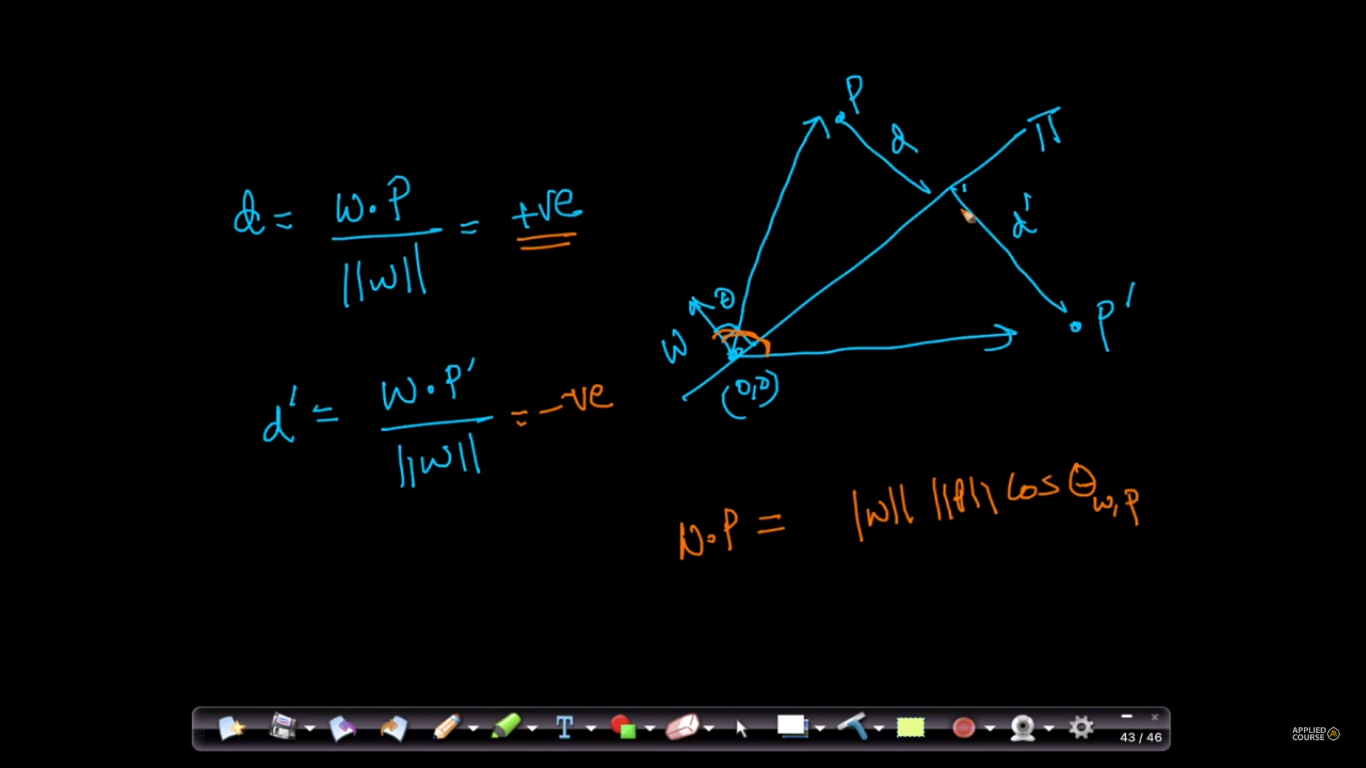 d = w.P / ||w|| = +ve
d' = w.P' / ||w|| = -ve
P
d
π
d'
P'
θ
w
(0,0)
w.P = ||w|| ||P|| cos θ w,P
T
43 / 46
APPLIED
COURSE